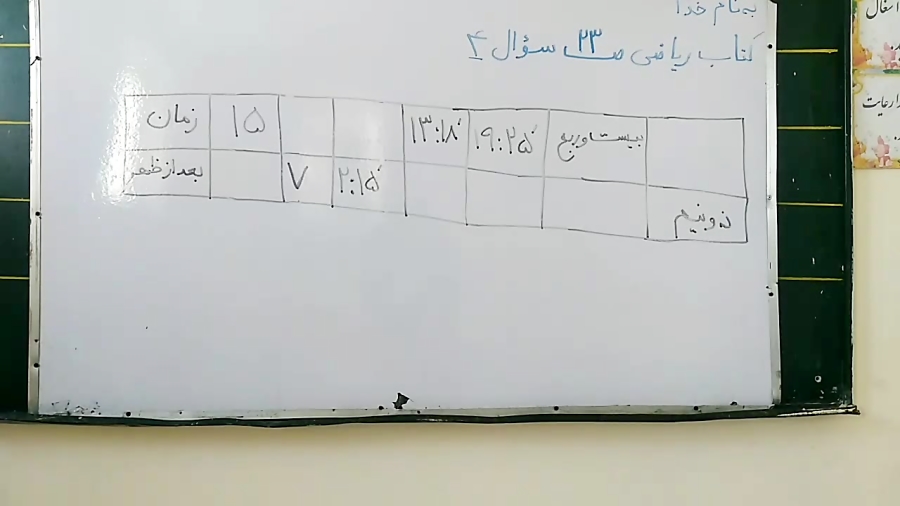 به نام خدا
کتاب ریاضی ص ۲۳ سؤال ۴
زمان ۱۵ ۱۳:۱۸′ ۱۹:۲۵′ بیست و ربع
بعد از ظهر ۷ ۲:۱۵′ نه و نیم